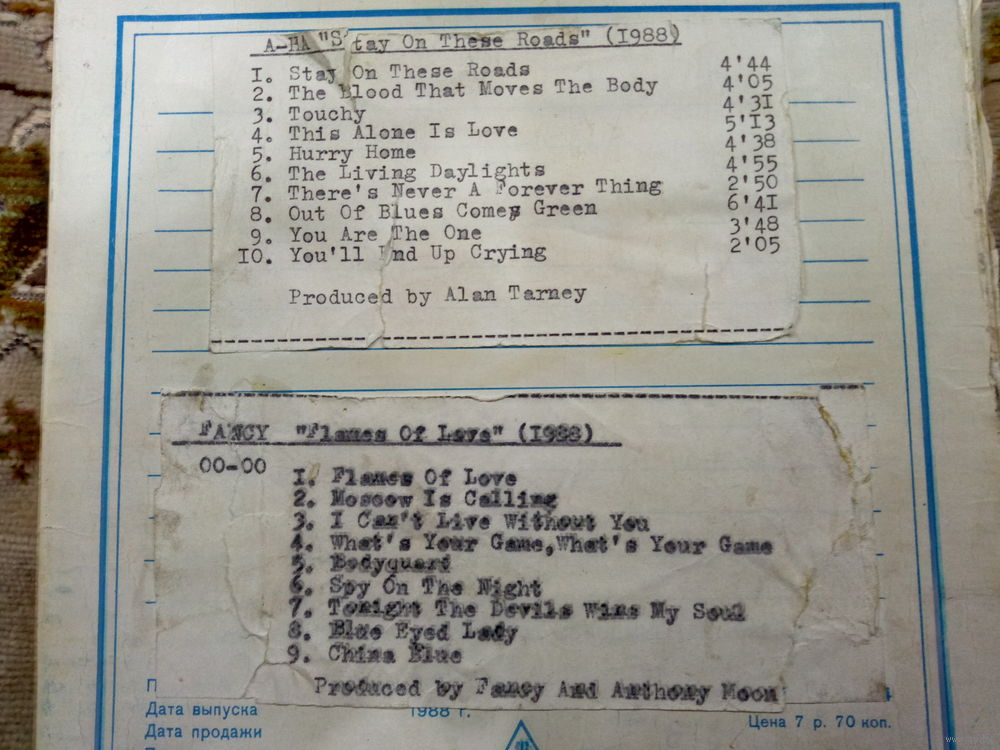 A-HA "Stay On These Roads" (1988)
1. Stay On These Roads 4'44
2. The Blood That Moves The Body 4'05
3. Touchy 4'31
4. This Alone Is Love 5'13
5. Hurry Home 4'38
6. The Living Daylights 4'55
7. There's Never A Forever Thing 2'50
8. Out Of Blues Comes Green 6'41
9. You Are The One 3'48
10. You'll End Up Crying 2'05
Produced by Alan Tarney
FANCY "Flames Of Love" (1988)
00-00
1. Flames Of Love
2. Moscow Is Calling
3. I Can't Live Without You
4. What's Your Game,What's Your Game
5. Bodyguard
6. Spy On The Night
7. Tonight The Devils Wins My Soul
8. Blue Eyed Lady
9. China Blue
Produced by Fancy And Anthony Moon
Дата выпуска 1988 г.
Дата продажи Цена 7 р. 70 коп.